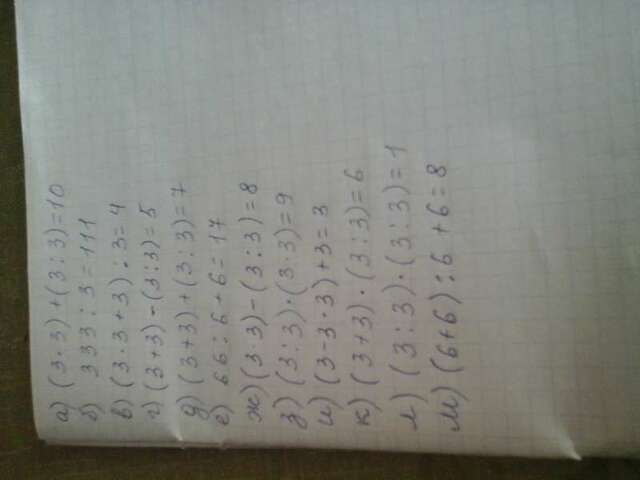 а) (3·3)+(3:3)=10
б) 333:3=111
в) (3·3+3):3=4
г) (3+3)-(3:3)=5
д) (3+3)+(3:3)=7
е) 66:6+6=17
ж) (3·3)-(3:3)=8
з) (3:3)·(3·3)=9
и) (3-3·3)+3=3
к) (3+3)·(3:3)=6
л) (3:3)·(3:3)=1
м) (6+6):6+6=8